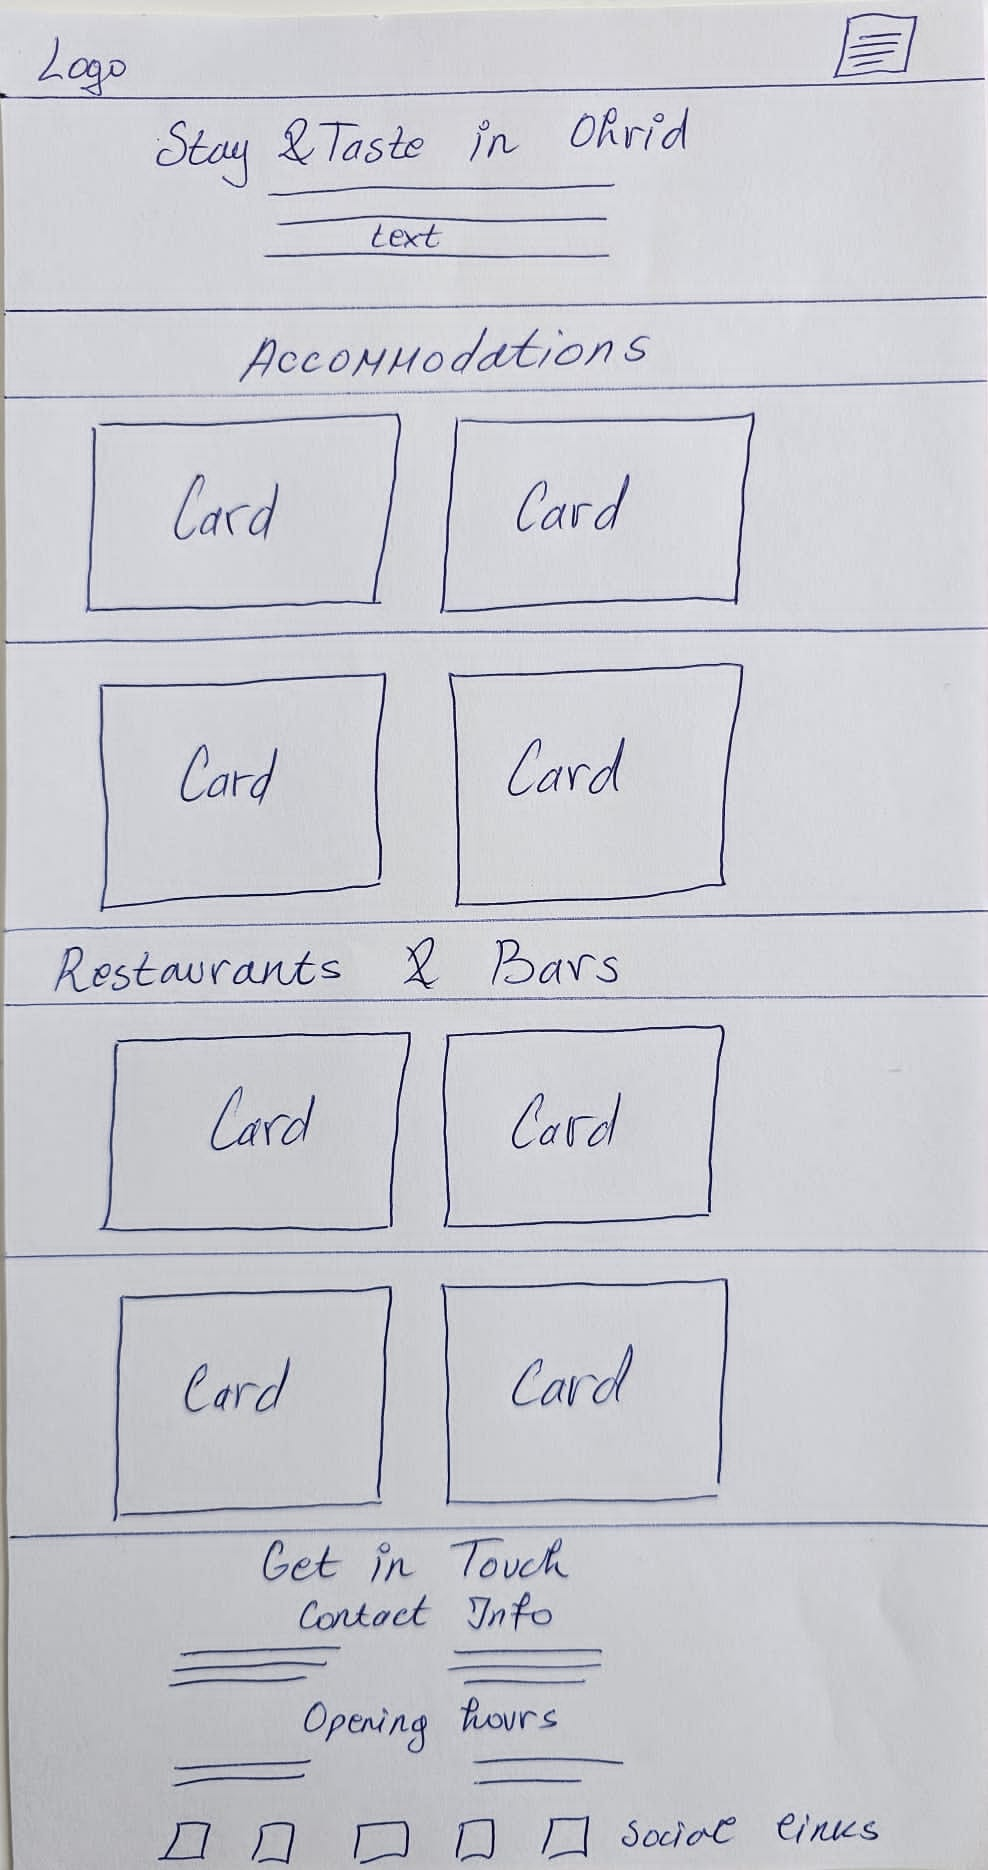 Logo
Stay & Taste in Ohrid
text
Accommodations
Card Card
Card Card
Restaurants & Bars
Card Card
Card Card
Get in Touch
Contact Info
Opening hours
social links